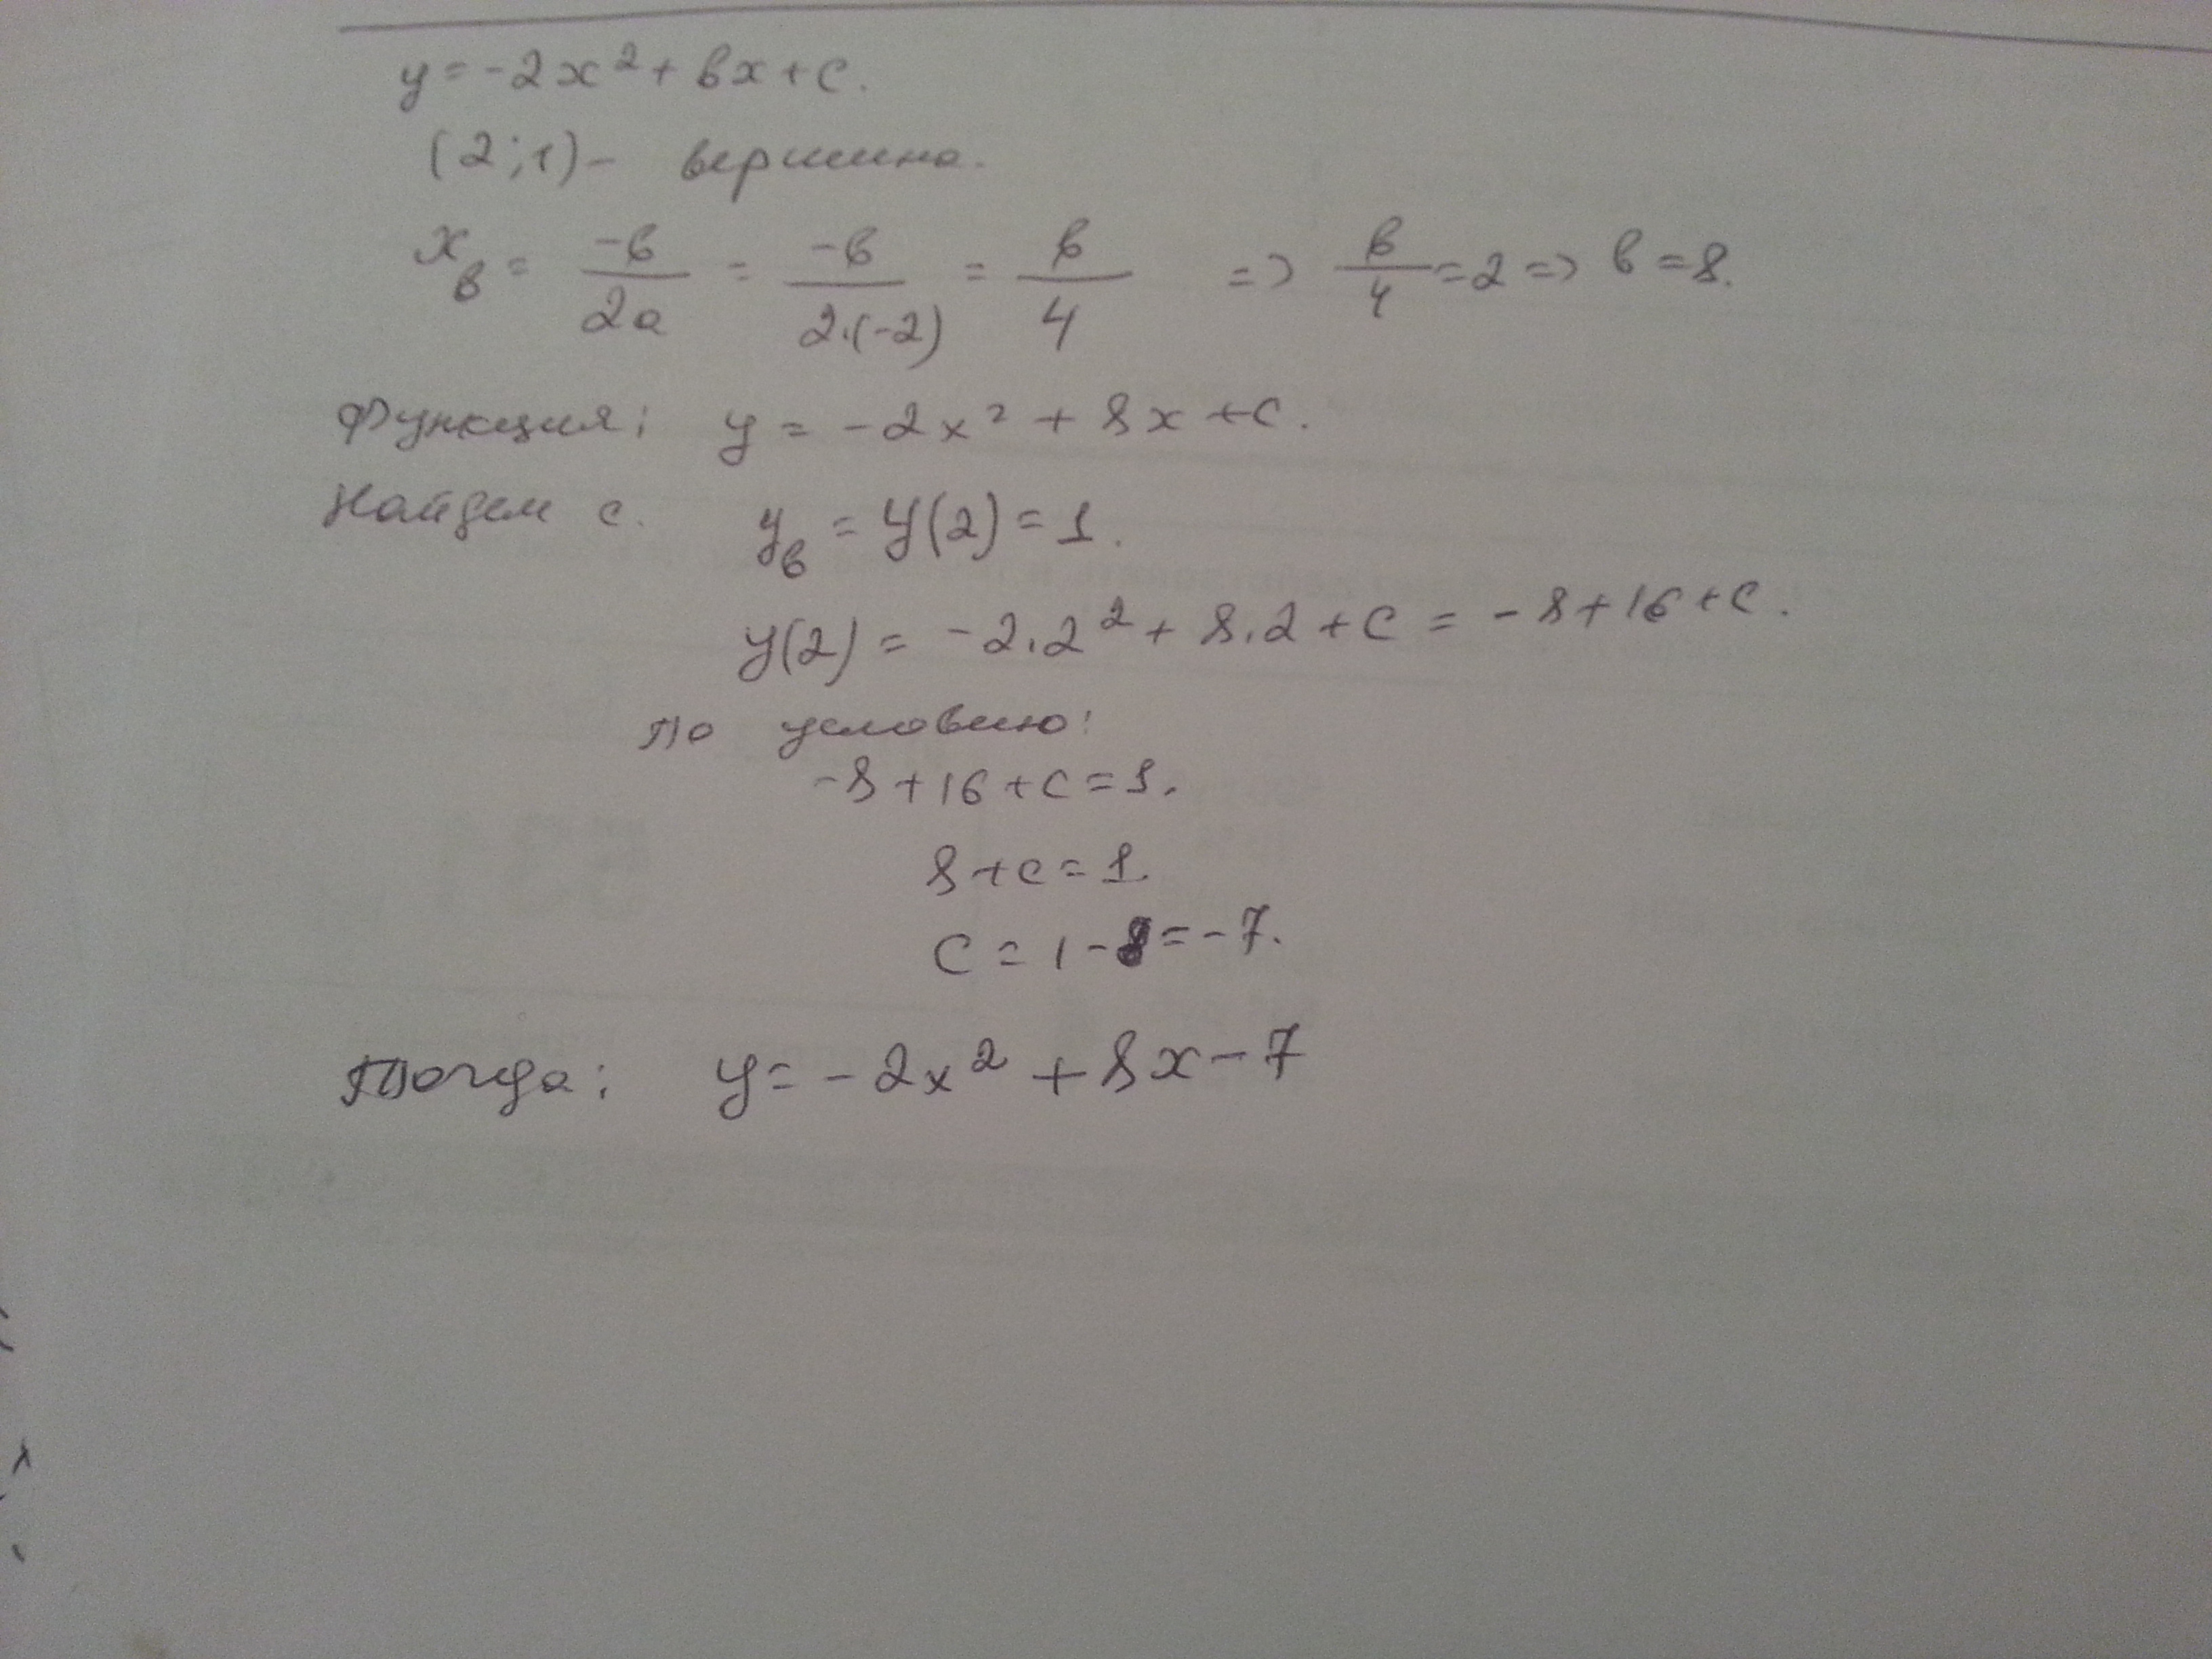 y = -2x² + bx + c.
(2;1) - вершина.
xв = -b/2a = -b/2·(-2) = b/4 => b/4 = 2 => b = 8.
Функция: y = -2x² + 8x + c.
Найдем c. yв = y(2) = 1.
y(2) = -2·2² + 8·2 + c = -8 + 16 + c.
По условию:
-8 + 16 + c = 1.
8 + c = 1.
c = 1 - 8 = -7.
Тогда: y = -2x² + 8x - 7